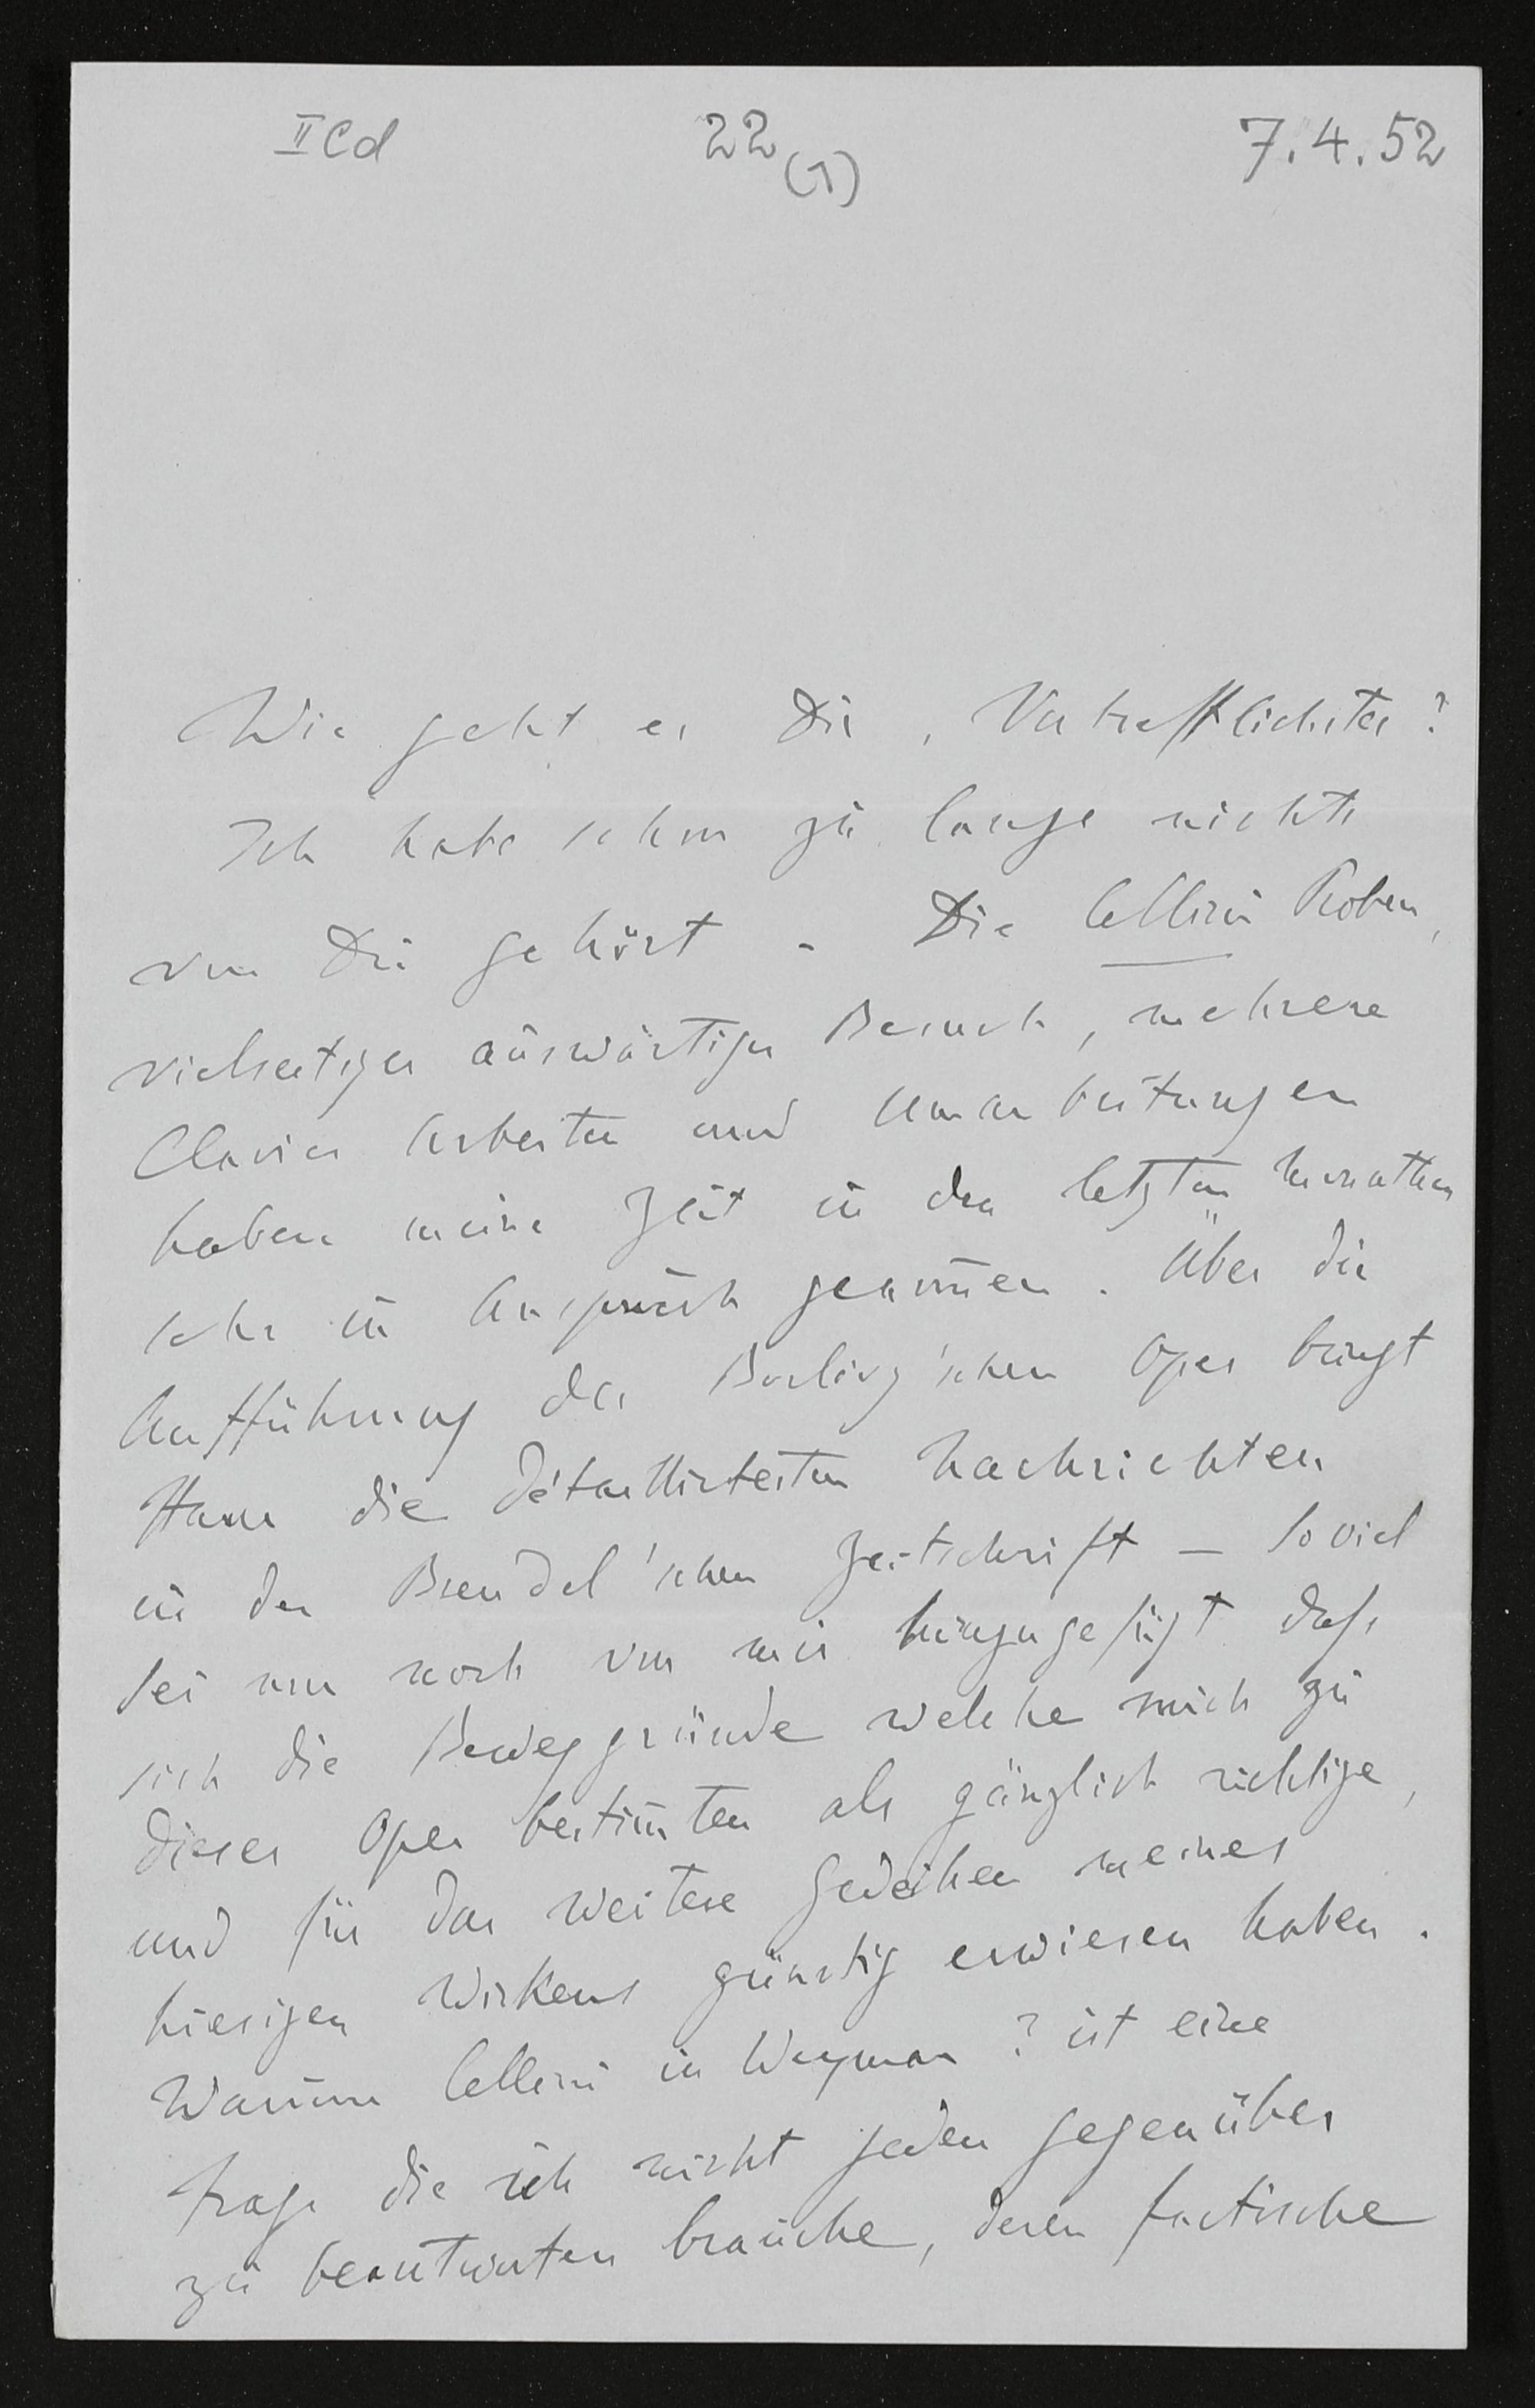 II Cd 22 (1) 7.4.52
Wie geht es Dir, Vortrefflichster?
Ich habe schon zu lange nichts
von Dir gehört. Die Cellini Proben,
vielseitiger auswärtiger Besuch, mehrere
Clavier Arbeiten und Umarbeitungen
haben meine Zeit in den letzten Monathen
sehr in Anspruch genom̄en. Über die
Aufführung der Berlioz'schen Oper bringt
Hans die détaillirtesten Nachrichten
in der Brendel'schen Zeitschrift — Soviel
sei nur noch von mir hinzugefügt dass
sich die Beweggründe welche mich zu
dieser Oper bestim̄ten als gänzlich richtige,
und für das weitere Gedeihen meines
hiesigen Wirkens günstig erwiesen haben.
Warum Cellini in Weymar? ist eine
Frage die ich nicht jeden gegenüber
zu beantworten brauche, deren factische